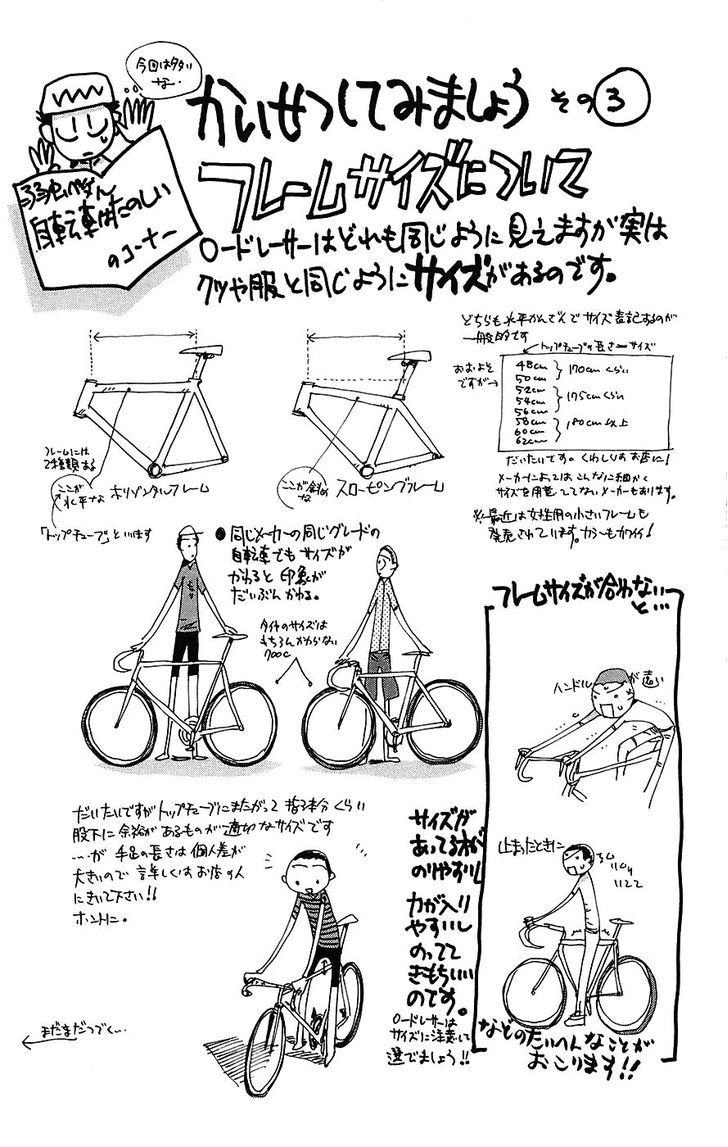 今回はタタい
な…
かいせつしてみましょう その3
フレームサイズについて
弱虫ペダル
自転車はたのしい
のコーナー
ロードレーサーはどれも同じように見えますが実は
クツや服と同じようにサイズがあるのです。
どちらも水平かんさんでサイズ表記するのが
一般的です
トップチューブの長さ=サイズ
おおよそ
ですが→
48cm
50cm
170cmくらい
52cm
54cm
56cm
175cmくらい
58cm
60cm
62cm
180cm以上
だいたいです。くわしくはお店に!
メーカーによってはこんなに細かく
サイズを用意してないメーカーもあります。
※最近は女性用の小さいフレームも
発売されています。カラーもカワイイ!
フレームには
2種類ある
ここが
水平な
ホリゾンタルフレーム
ここが斜めな
スローピングフレーム
「トップチューブ」といいます
●同じメーカーの同じグレードの
自転車でもサイズが
かわると印象が
だいぶんかわる。
タイヤのサイズは
もちろんかわらない
700C
フレームサイズが合わない
と…
ハンドルが遠い
止まったときに
などのたいへんなことが
おこります!!
だいたいですがトップチューブにまたがって指3本分くらい
股下に余裕があるものが適切なサイズです
…が 手足の長さは個人差が
大きいので 詳しくはお店の人
にきいて下さい!!
ホントに。
サイズが
あってる方が
のりやすいし
力が入り
やすいし
のってて
きもちいい
のです。
ロードレーサーは
サイズに注意して
選びましょう!!
まだまだつづく…